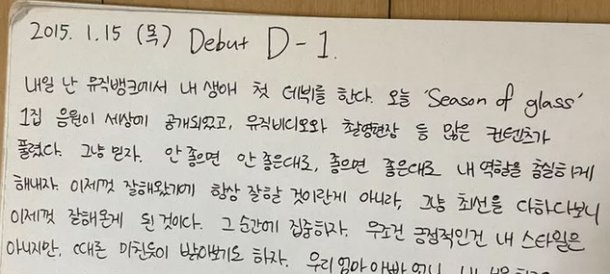 2015. 1.15 (목) Debut D-1.
내일 난 뮤직뱅크에서 내 생애 첫 데뷔를 한다. 오늘 'Season of glass'
1집 음원이 세상에 공개되었고, 뮤직비디오와 촬영현장 등 많은 컨텐츠가
풀렸다. 그냥 믿자. 안 좋으면 안 좋은대로, 좋으면 좋은대로 내 역량을 충실하게
해내자. 이제껏 잘해왔기에 항상 잘할 것이란게 아니라, 그냥 최선을 다하다보니
이제껏 잘해온게 된 것이다. 그 순간에 집중하자. 무조건 긍정적인건 내 스타일은
아니지만, 때론 미친듯이 밝아보기도 하자. 우리 엄마 아빠